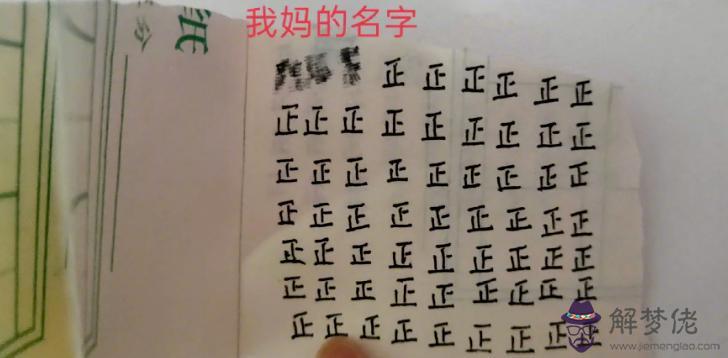 我妈的名字
正正正正正正
正正正正正正正正正
正正正正正正正正正
正正正正正正正正正
正正正正正正正正正
正正正正正正正正正
正正正正正正正正正
纸
分
解梦佬
www.jiemenglao.com